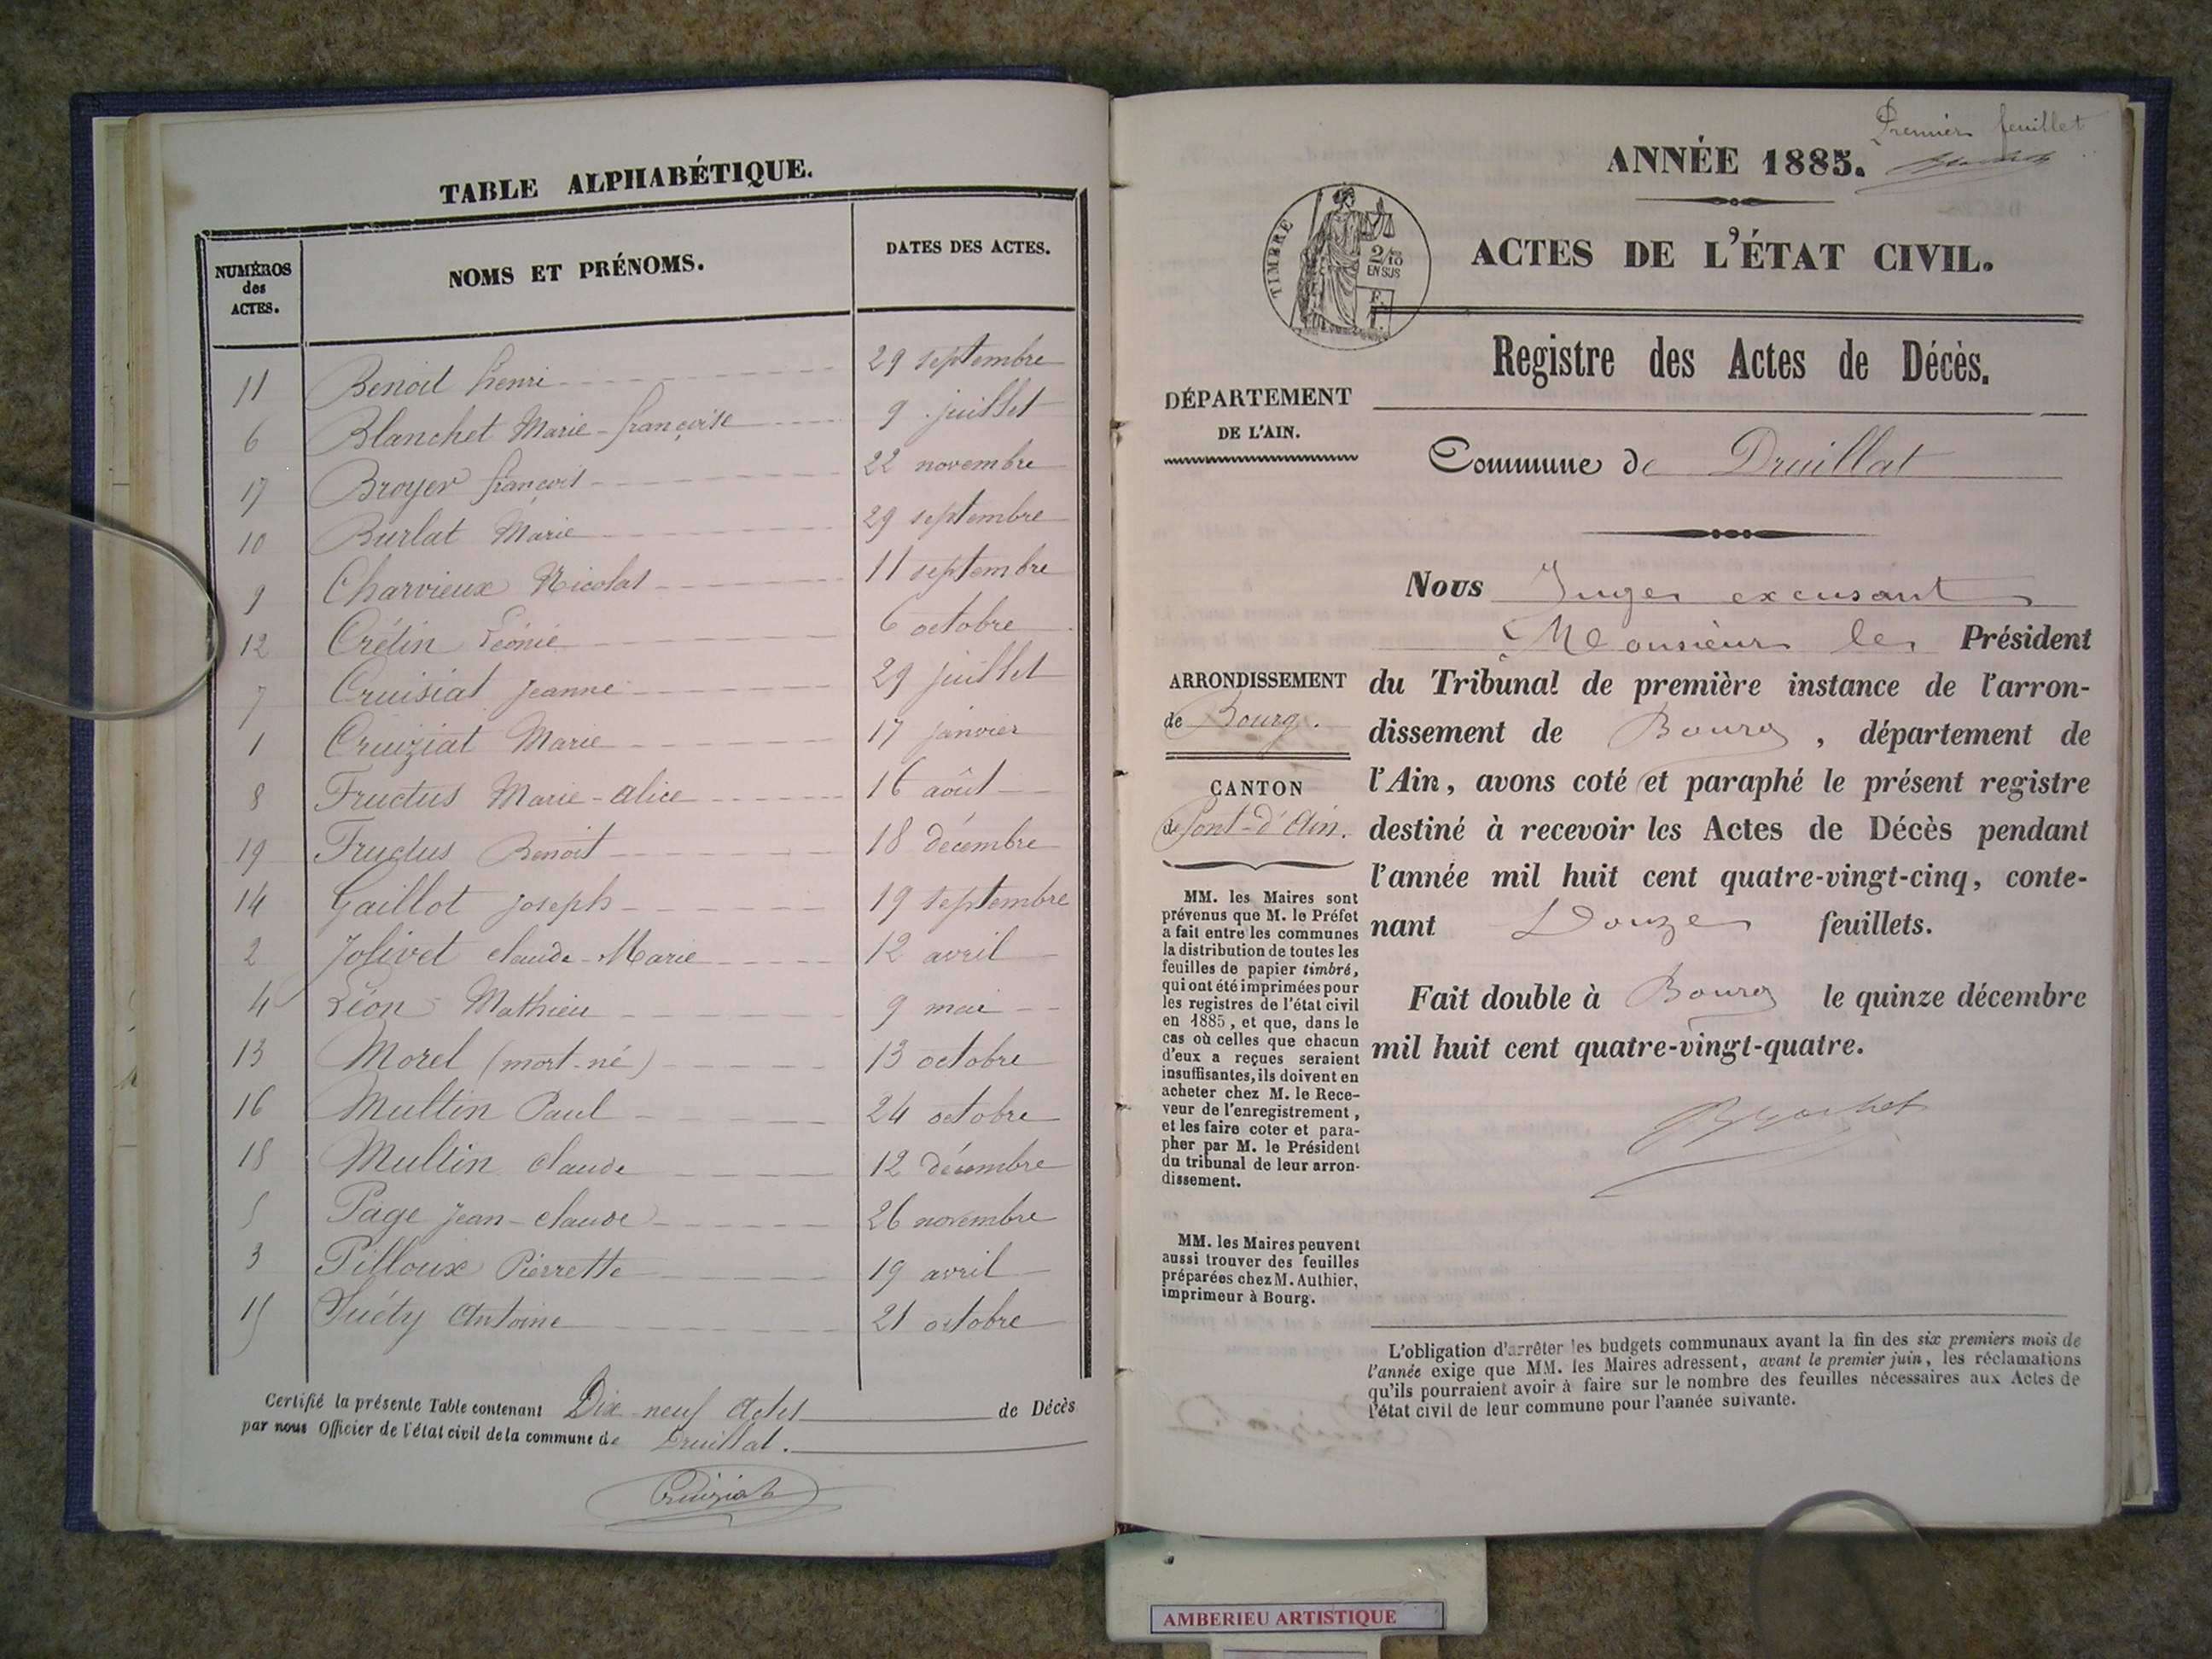 TABLE ALPHABÉTIQUE.
NUMÉROS des ACTES. NOMS ET PRÉNOMS. DATES DES ACTES.
11 Benoit henri 29 septembre
6 Blanchet Marie-françoise 9 juillet
17 Broyer françois 22 novembre
10 Burlat Marie 29 septembre
9 Charvieux Nicolas 11 septembre
12 Crétin Léonie 6 octobre
7 Cruisiat Jeanne 29 juillet
1 Cruiziat Marie 17 janvier
8 Fructus Marie-alice 16 août
19 Fructus Benoit 18 décembre
14 Gaillot Joseph 19 septembre
2 Jolivet claude-Marie 12 avril
4 Léon Mathieu 9 mai
13 Morel (mort-né) 13 octobre
16 Multin Paul 24 octobre
18 Multin claude 12 décembre
5 Page Jean-claude 26 novembre
3 Pilloux Pierrette 19 avril
15 Antoine 21 octobre
Certifié la présente Table contenant Dix-neuf actes de Décès
par nous Officier de l'état civil de la commune de Druillat.
Cruiziat
Premier feuillet
ANNÉE 1885.
TIMBRE
2/10
EN SUS
ACTES DE L'ÉTAT CIVIL.
Registre des Actes de Décès.
DÉPARTEMENT
DE L'AIN.
Commune de Druillat
ARRONDISSEMENT
de Bourg.
CANTON
de Pont-d'Ain.
MM. les Maires sont
prévenus que M. le Préfet
a fait entre les communes
la distribution de toutes les
feuilles de papier timbré,
qui ont été imprimées pour
les registres de l'état civil
en 1885, et que, dans le
cas où celles que chacun
d'eux a reçues seraient
insuffisantes, ils doivent en
acheter chez M. le Rece-
veur de l'enregistrement,
et les faire coter et para-
pher par M. le Président
du tribunal de leur arron-
dissement.
MM. les Maires peuvent
aussi trouver des feuilles
préparées chez M. Authier,
imprimeur à Bourg.
Nous Juge excusant
Monsieur le Président
du Tribunal de première instance de l'arron-
dissement de Bourg, département de
l'Ain, avons coté et paraphé le présent registre
destiné à recevoir les Actes de Décès pendant
l'année mil huit cent quatre-vingt-cinq, conte-
nant Douze feuillets.
Fait double à Bourg le quinze décembre
mil huit cent quatre-vingt-quatre.
L'obligation d'arrêter les budgets communaux avant la fin des six premiers mois de
l'année exige que MM. les Maires adressent, avant le premier juin, les réclamations
qu'ils pourraient avoir à faire sur le nombre des feuilles nécessaires aux Actes de
l'état civil de leur commune pour l'année suivante.
AMBERIEU ARTISTIQUE